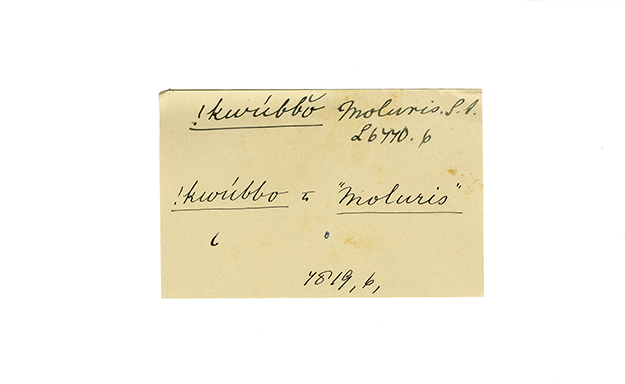 !kwúbbŏ Moluris. S.A.
L 6770. b
!kwúbbo = "Moluris"
7819, b,